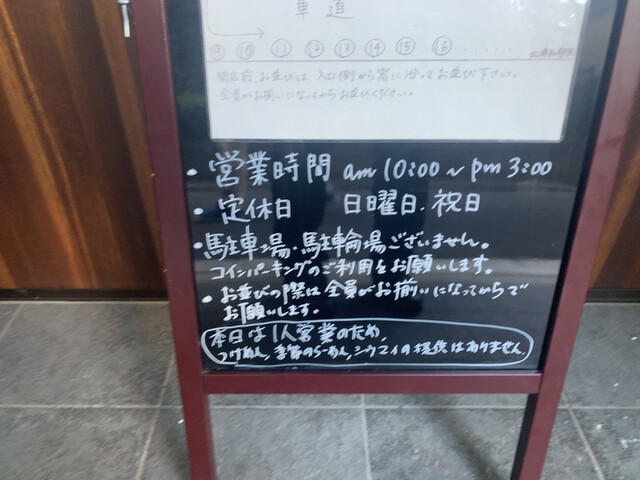 車道
⑨ ⑩ ⑪ ⑫ ⑬ ⑭ ⑮ ⑯ ......
開店前、お並びは、入口側から窓に沿ってお並び下さい。
全員がお揃いになってからお並びください。
・営業時間 am 10:00 ~ pm 3:00
・定休日 日曜日.祝日
・駐車場・駐輪場ございません。
コインパーキングのご利用をお願いします。
・お並びの際は全員がお揃いになってからで
お願いします。
本日は1人営業のため、
つけめん、季節のらーめん、シウマイの提供はありません。